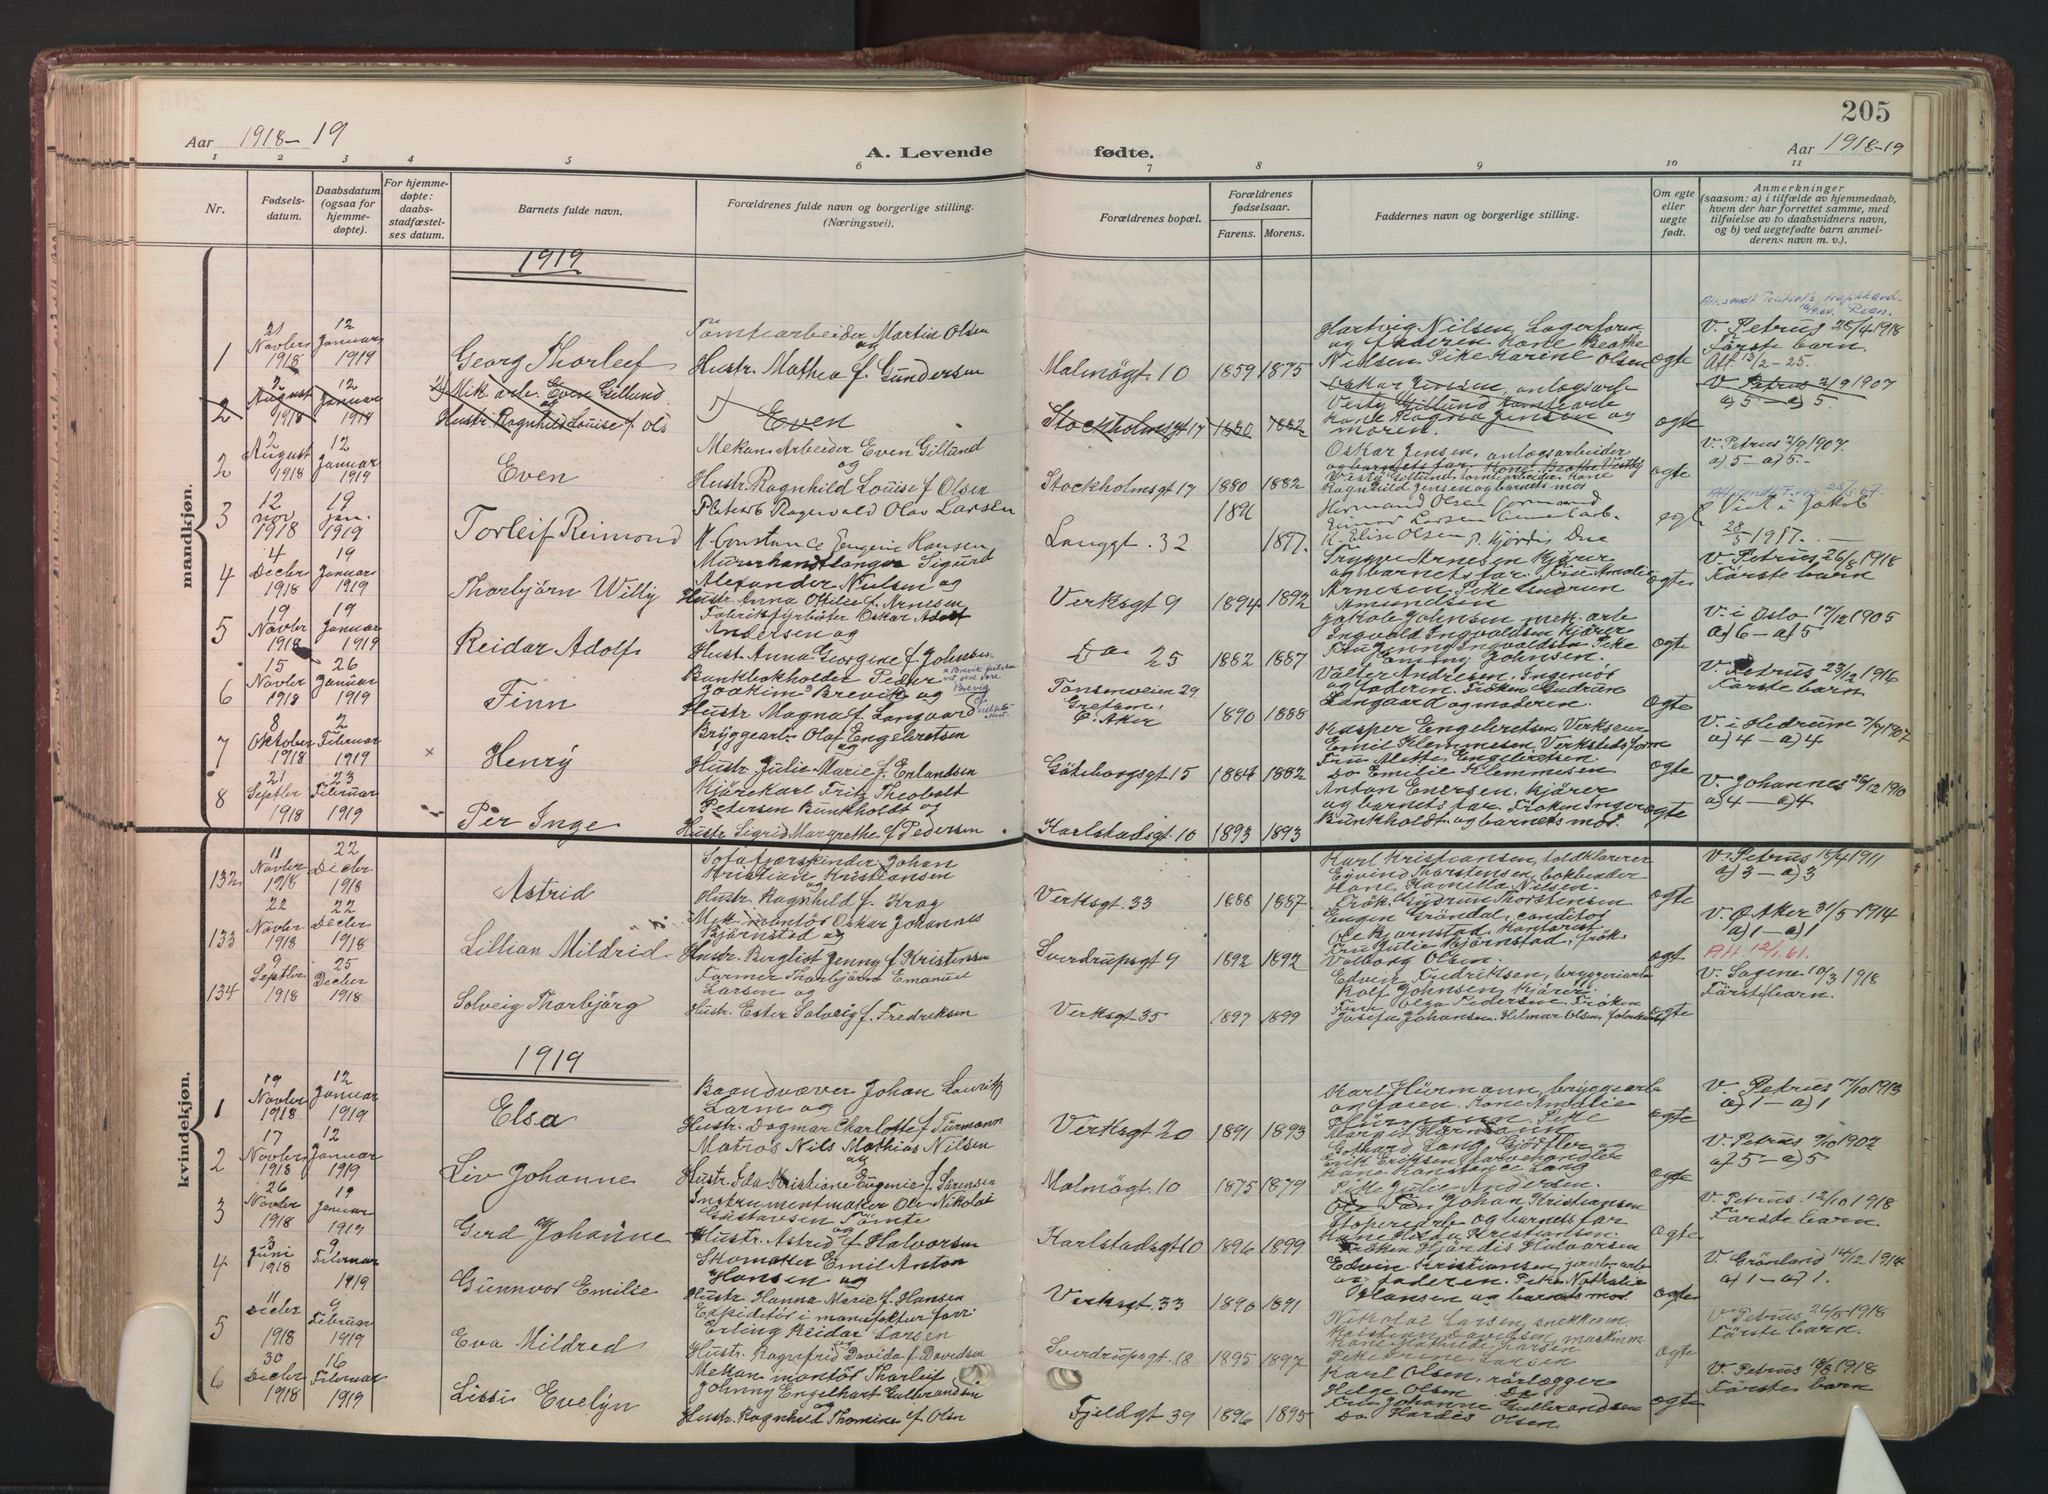 205
Aar 1918-19
A. Levende fødte.
Aar 1918-19
1 2 3 4 5 6 7 8 9 10 11
Nr.
Fødsels-
datum.
Daabsdatum
(ogsaa for
hjemme-
døpte).
For hjemme-
døpte:
daabs-
stadfæstel-
ses datum.
Barnets fulde navn.
Forældrenes fulde navn og borgerlige stilling.
(Næringsvei).
Forældrenes bopæl.
Forældrenes
fødselsaar.
Farens. Morens.
Faddernes navn og borgerlige stilling.
Om egte
eller
uegte
født.
Anmerkninger
(saasom: a) i tilfælde av hjemmedaab,
hvem der har forrettet samme, med
tilføielse av to daabsvidners navn,
og b) ved uegtefødte barn anmel-
derens navn m. v.).
mandkjøn.
1919
1
21 Novbr 1918
12 Januar 1919
Georg Thorleif
Tomtearbeider Martin Olsen
og
Hustr. Mathea f. Gundersen
Malmögt. 10
1859 1875
Hartvig Nilsen, Lagerform
og faderen Kone Beathe
Nielsen Pike Karine Olsen
egte
V. Petrus 28/4 1918
Förste barn.
Att. 13/2-25.
2
2 August 1918
12 Januar 1918
2) Mik. arb. Even Gilland
og
Hustr. Ragnhild Louise f. Ols
1) Even
Stockholmsgt 17
1880 1882
Oskar Jensen, anlægsarb
egte
V. Petrus 2/9 1907
a) 5 - a) 5.
2
2 August 1918
12 Januar 1919
Even
Mekan. Arbeider Even Gilland
og
Hustr. Ragnhild Louise f Olsen
Stockholmsgt 17
1880 1882
Oskar Jensen, anlægsarbeider
Ragnhild Jensen og barnets mor
egte
V. Petrus 2/9 1907.
a) 5 - a) 5.
3
12 nov 1918
19 jan. 1919
Torleif Reimond
Platearb Ragnvald Olav Larsen
H Constance Eugenie Hansen
Langgt. 32
1896
1897
Hermand Olsen Formand
H. Elise Olsen P. Hjördis Due
egte
Viet i Jakob
28/5 1917.
4
4 Decbr 1918
19 Januar 1919
Thorbjörn Willy
Murerhandtlanger Sigurd
Alexander Nielsen og
Hustr. Anna Ottilie f. Arnesen
Verksgt 9
1894 1892
Trygve Arnesen Kjörer
og barnets far. Fru Amalie
Arnesen Pike Gudrun
Amundsen
egte
V. Petrus 26/8 1918
Förste barn
5
19 Novbr 1918
19 Januar 1919
Reidar Adolf
Fabrikkfyrböter Oskar Adolf
Andersen og
Hust. Anna Georgine f. Johnsen
Do 25
1882 1887
Jakob Johnsen mek. arb
Ingvald Ingvaldsen Kjörer
Fru Jenny Ingvaldsen Pike
Emmy Johnsen.
egte
V. i Oslo 17/12 1905
a) 6 - a) 5
6
15 Novbr 1918
26 Januar 1919
Finn
Bankbokholder Peder
Joakim Brevik og
Hustr Magna f. Langaard
Tonsenveien 29
Grefsen,
Ö. Aker
1890 1888
Valter Andresen, Ingeniör
og faderen. Fröken Gudrun
Langaard og moderen.
egte
V. Petrus 23/12 1916
Förste barn
7
8 Oktober 1918
2 Februar 1919
×
Henry
Bryggearb. Olaf Engebretsen
og
Hustr. Julie Marie f. Erlandsen
Göteborgsgt 15
1884 1882
Kasper Engebretsen Verkseier
Emil Klemmesen, Verkstedsform
Fru Mette Engebretsen.
Do Emilie Klemmesen
egte
V. i Hedrum 7/7 1907
a) 4 - a) 4
8
21 Septbr 1918
23 Februar 1919
Per Inge
Kjörekarl Fritz Theobalt
Petersen Bunkholdt og
Hustr Sigrid Margrethe f Pedersen
Karlstadsgt. 10
1893 1893
Anton Enersen, Kjörer
og barnets far. Fröken Inger
Bunkholdt og barnets mor.
egte
V. Johannes 26/12 1910
a) 4 - a) 4
kvindekjøn.
132
11 Novbr 1918
22 Decbr 1918
Astrid
Kristian Kristiansen
og
Hustr. Ragnhild f. Krog
Verksgt. 33
1888 1887
Karl Kristiansen, toldklarerer
Eyvind Thorstensen, bokbinder
Kone Kamilla Nilsen.
Frök. Gudrun Thorstensen
egte
V. Petrus 15/4 1911
a) 3 - a) 3
133
22 Novbr 1918
22 Decbr 1918
Lillian Mildrid
Mek. montör Oskar Johannes
Bjørnstad og
Hustr. Bergliot Jenny f Kristensen
Sverdrupsgt 9
1892 1892
Eugen Gröndal, conditor
Ole Bjørnstad, Kontorist
Fru Julie Bjørnstad, frök.
Valborg Olsen.
egt
V. Ö Aker 31/5 1914
a) 1 - a) 1
Att 12/1. 61.
134
9 Septbr 1918
25 Decbr 1918
Solveig Thorbjörg
Former Thorbjørn Emanuel
Larsen og
Hustr. Ester Solveig f. Fredriksen
Verksgt 35
1897 1899
Edvin Fredriksen, bryggeriarb
Rolf Johnsen Kjörer.
Fru Olga Pedersen. Fröken
Josefa Johansen. Hilmar Olsen
egte
V. Sagene 10/3 1918
Förste barn.
1919
1
19 Novbr 1918
12 Januar 1919
Elsa
Baandvæver Johan Lauritz
Larm og
Hustr. Dagmar Charlotte f Furmann
Verksgt 20
1891 1893
egte
V. Petrus 17/10 1913
a) 1 - a) 1
2
17 Novbr 1918
12 Januar 1919
Liv Johanne
Matros Nils Mathias Nilsen
og
Hustr Ida Kristiane Eugenie f Sörensen
Malmögt. 10
1875 1879
Erik Eriksen farvehandler
Kone Konstance Lang
Pike Julie Andersen.
egte
V. Petrus 9/10 1902
a) 5 - a) 5
3
26 Novbr 1918
19 Januar 1919
Gerd Johanne
Instrumentmaker Ole Nikolai
Gustavsen Tömte
og
Hustr. Astrid f Halvorsen
Karlstadsgt 10
1896 1899
Johan Kristiansen
Stöperiarb og barnets far
Kone Hilda Kristiansen
Fröken Hjördis Halvorsen
egte
V. Petrus. 12/10 1918
Förste barn.
4
3 Juni 1918
9 Februar 1919
Gunnvor Emilie
Skomaker Emil Anton
Hansen og
Hustr. Hanna Marie f. Hansen
Verksgt. 33
1890 1891
Edvin Kristiansen, jernb. arb
og faderen. Pike Nathalie
Hansen og barnets mor.
egte
V. Grönland 16/12 1914
a) 1 - a) 1.
5
11 Decbr 1918
9 Februar 1919
Eva Mildred
Expeditör i manufaktur forr.
Erling Reidar Larsen
og
Hustr. Ragnfrid Davida f. Davidsen
Sverdrupsgt. 18
1895 1897
Nikolai Larsen, snekkerm.
Kristian Davidsen, maskinm
Kone Mathilde Larsen
egte
V. Petrus 26/5 1918
Förste barn.
6
30 Decbr 1918
16 Februar 1919
Lissi Evelyn
Mekan montör Tharleif
Johnny Engelhart Gulbrandsen
og
Hustr. Ragnhild Thomine f Olsn
Fjeldgt 39
1896 1895
Karl Olsen, rörlægger
Helge Olsen Do
Fru Johanne Gulbrandsen
Do Hardis Olsen
egte
V. Petrus 18/8 1918
Förste barn